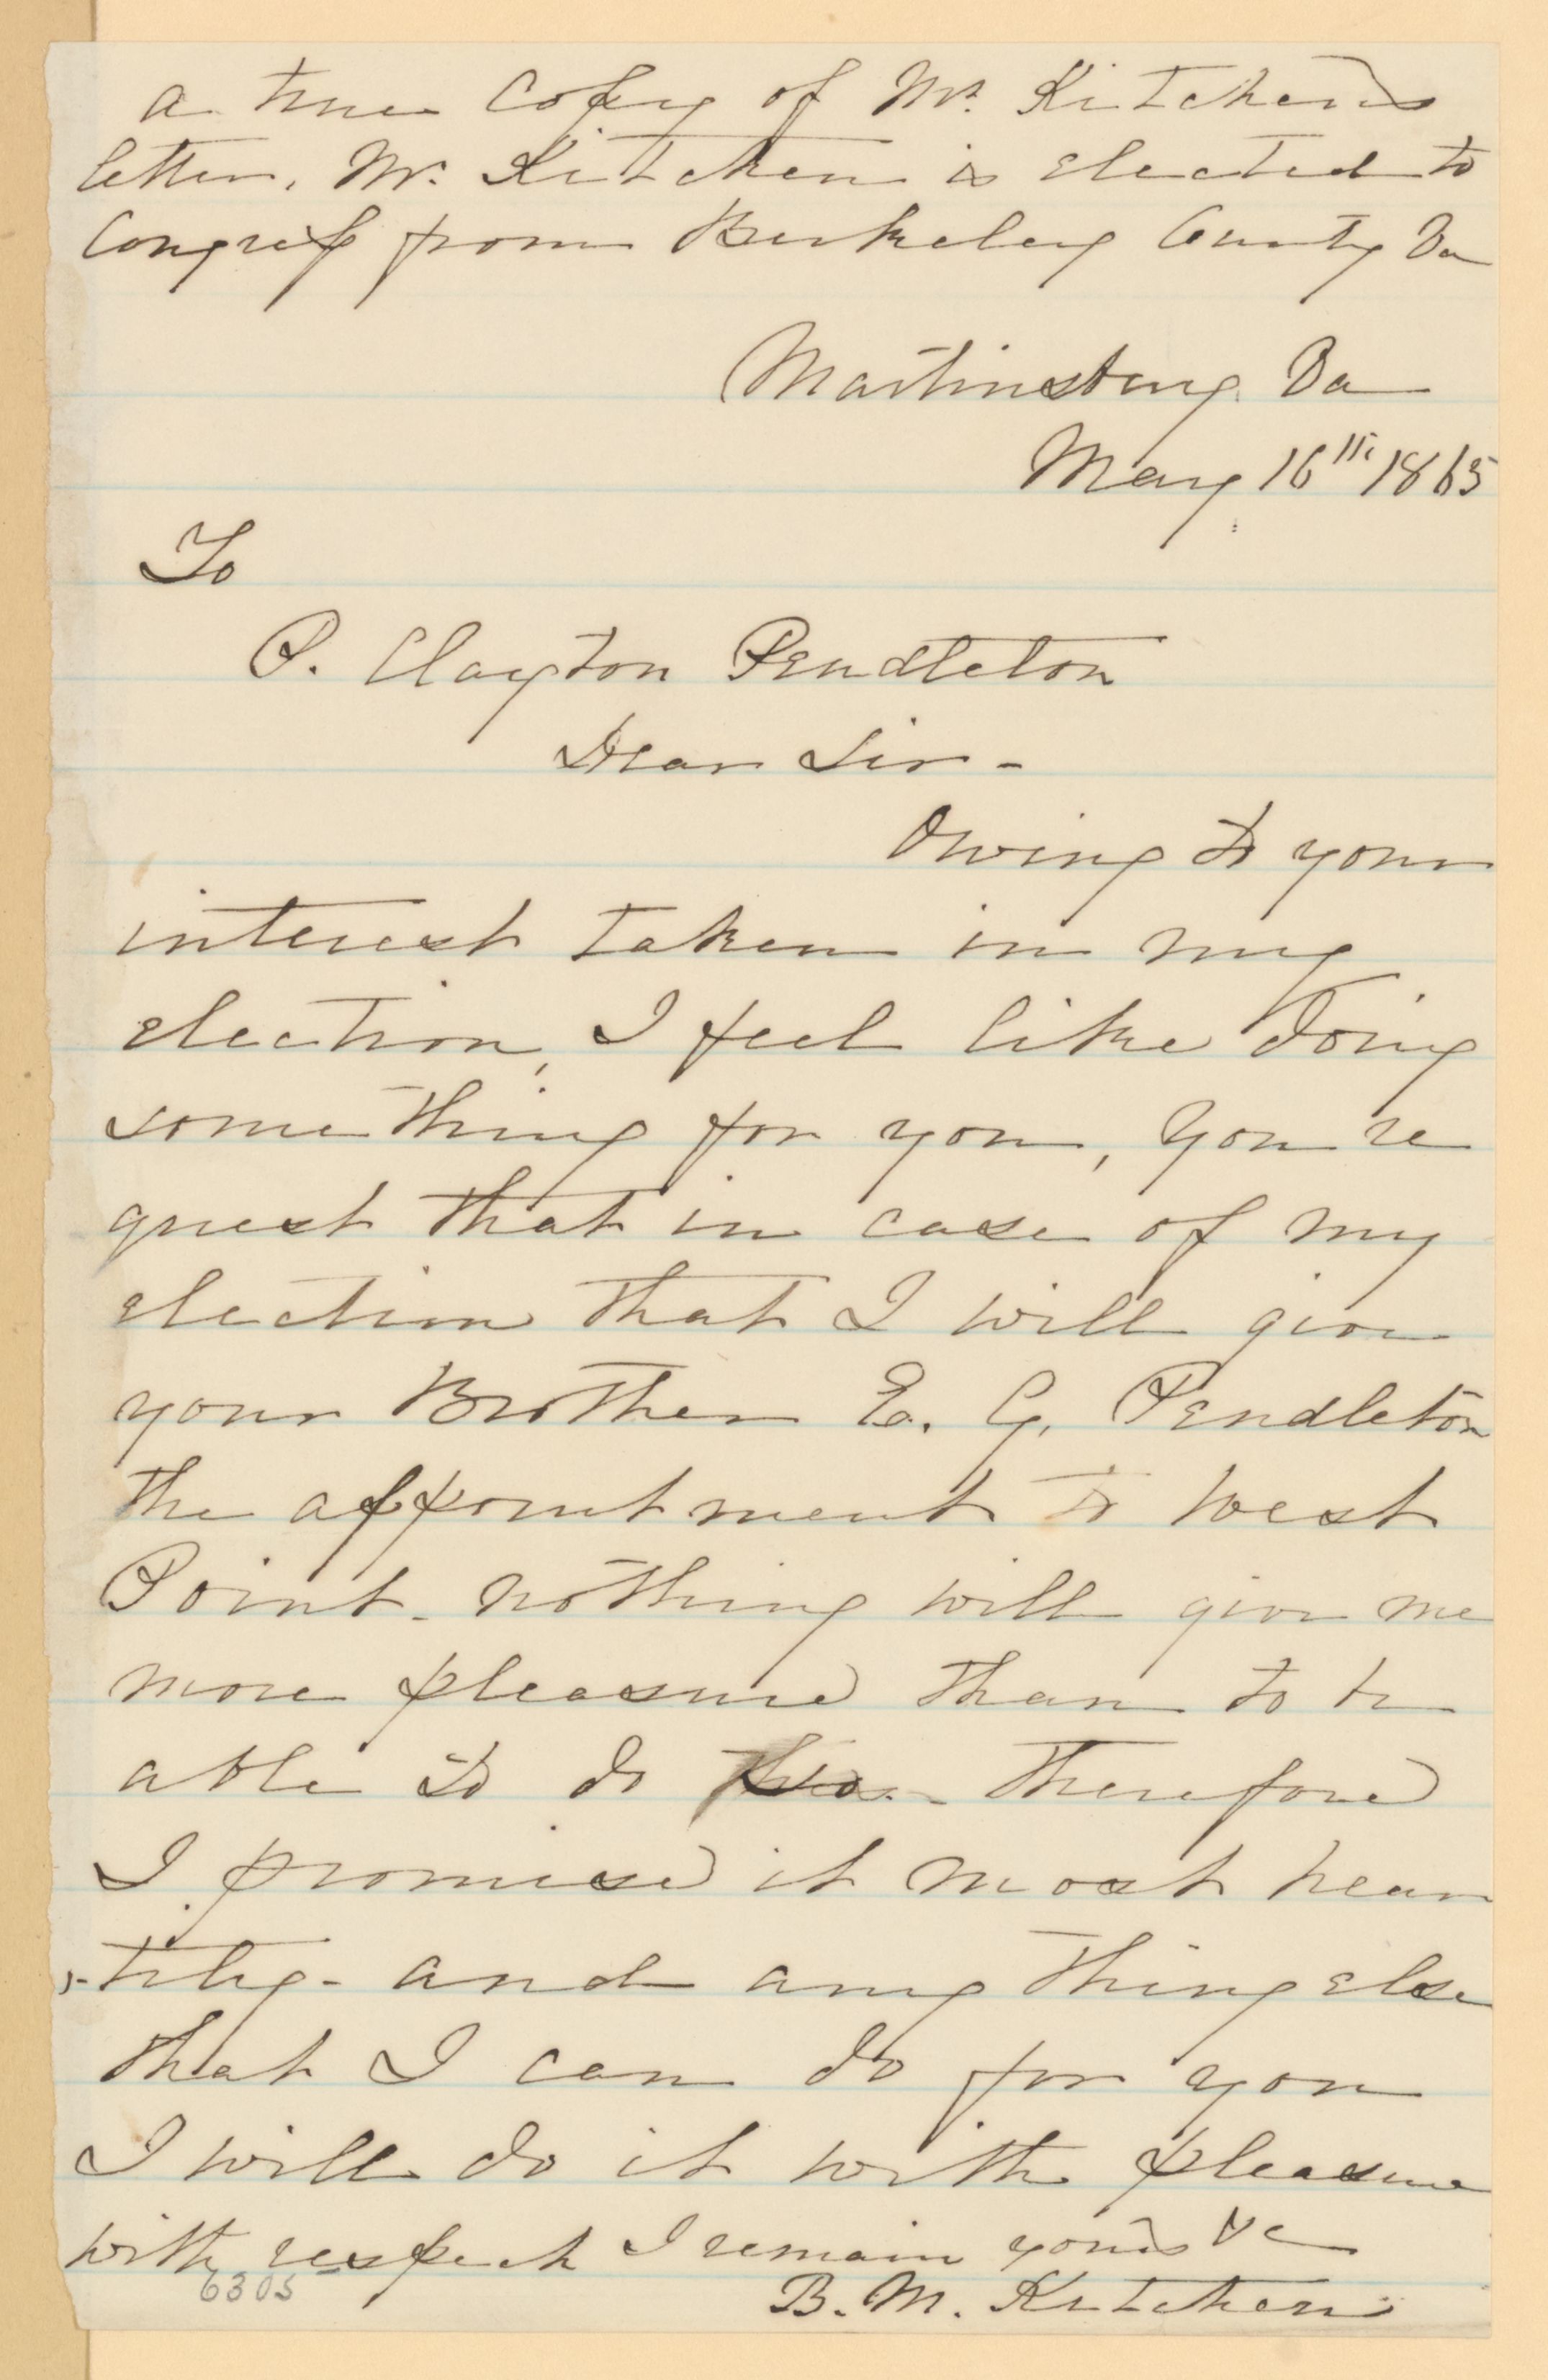 a true Copy of Mr. Kitchen's
letter. Mr. Kitchen is elected to
Congress from Berkeley County Va
Martinsburg. Va
May 16th 1865
To
P. Clayton Pendleton
Dear Sir -
Owing to your
interest taken in my
election, I feel like doing
some thing for you, You re
quest that in case of my
election that I will give
your Brother E. G. Pendleton
the appointment to West
Point - nothing will give me
more pleasure than to be
able to do this - therefore
I promise it most hear
-tily - and any thing else
that I can do for you
I will do it with pleasure
with respect I remain your's &c
6305
B. M. Kitchen